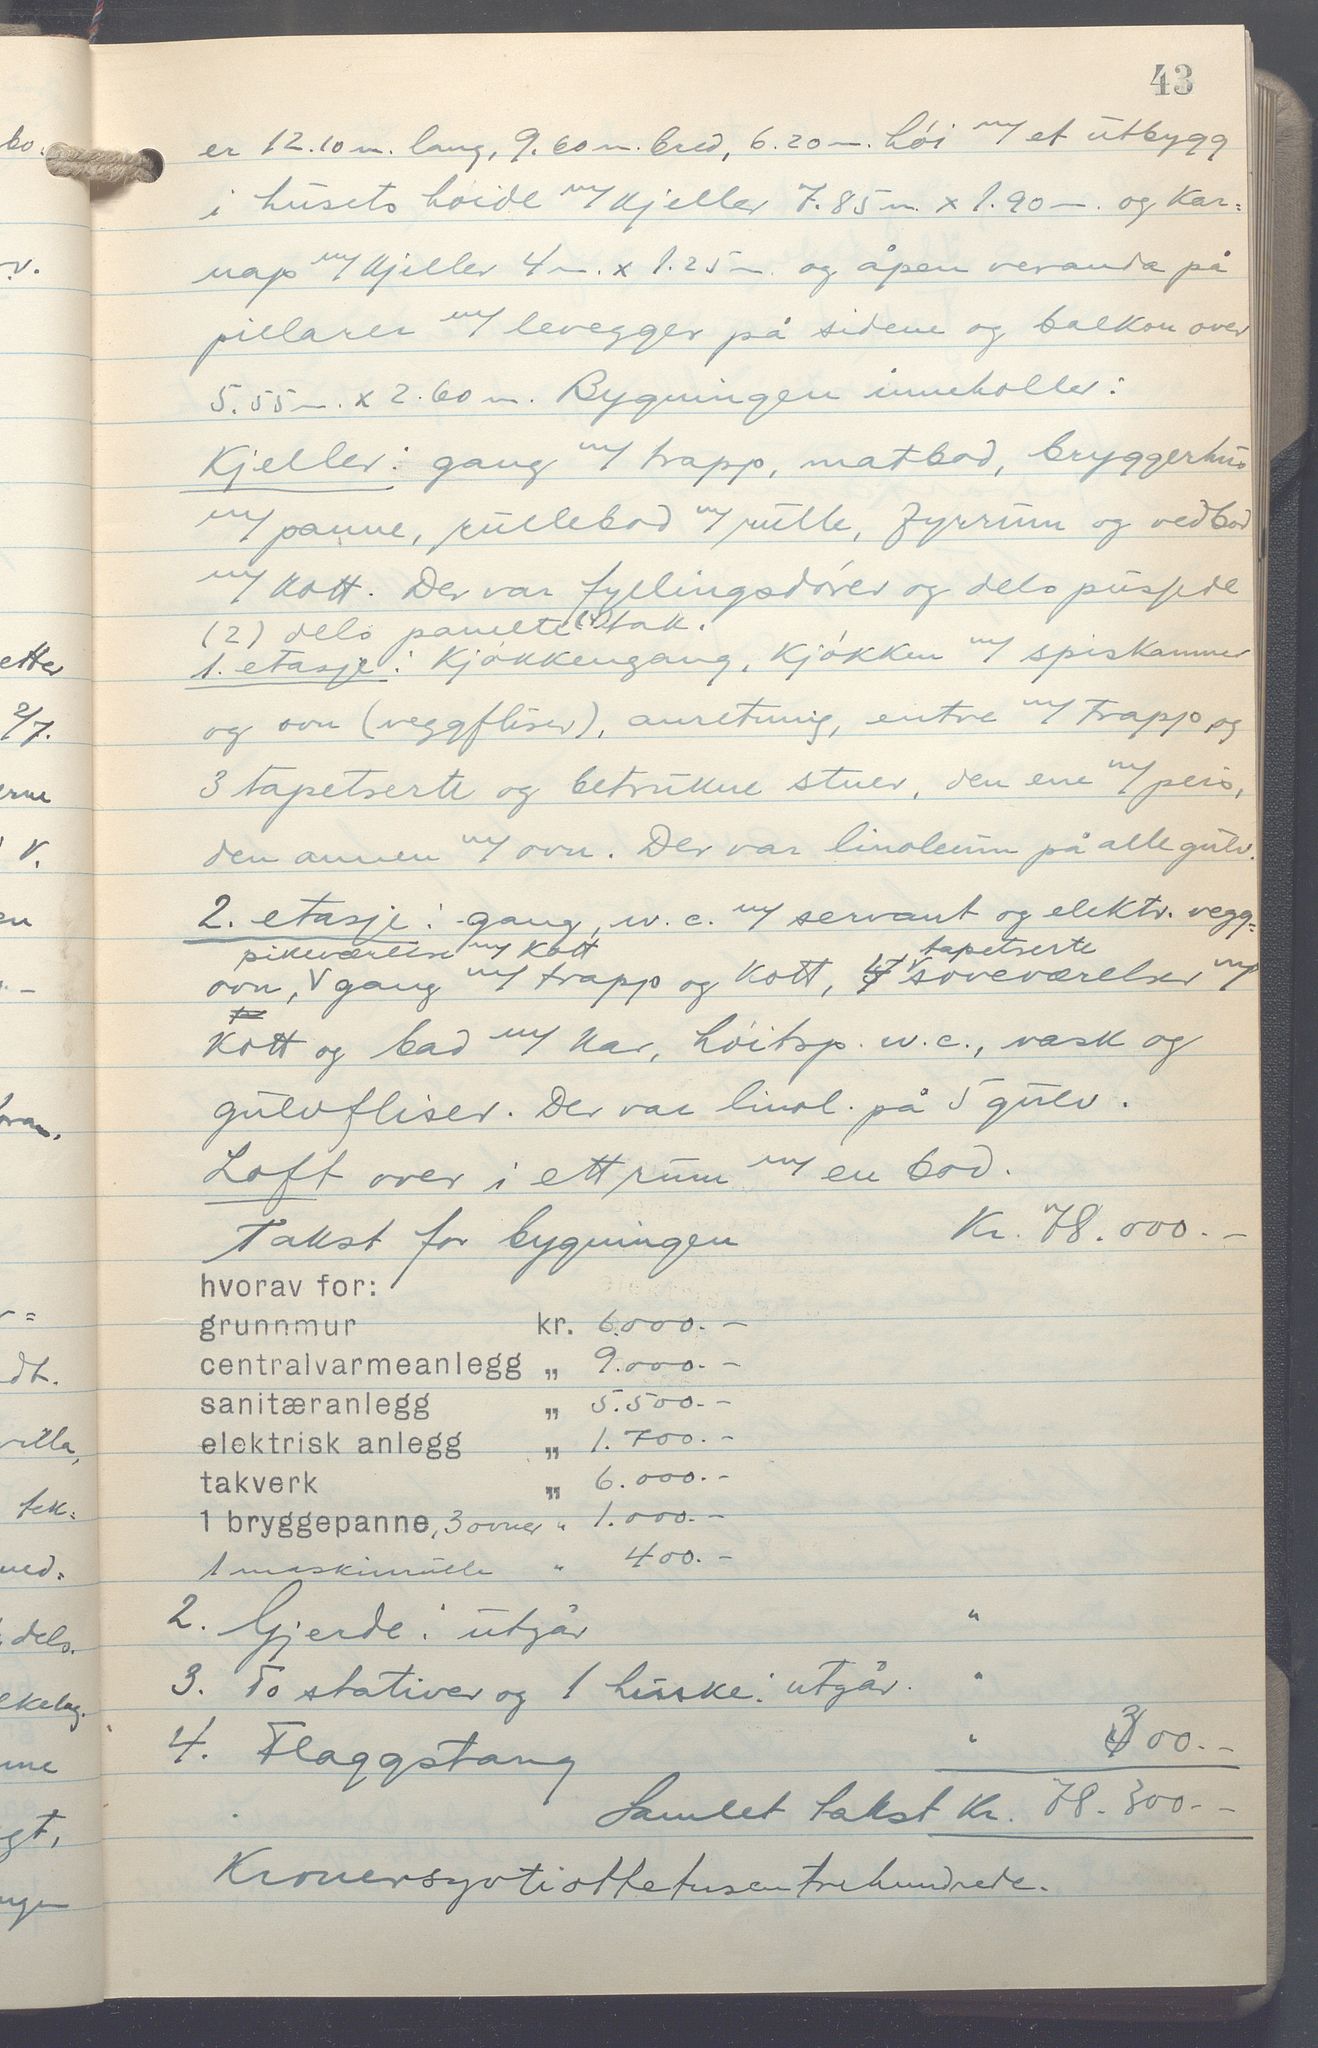 43
er 12.10 m. lang, 9.60 m. bred, 6.20 m. hôi m/ et utbygg
i husets høide m/ kjeller 7.85 m. x 1.90 m. og kar=
nap m/ kjeller 4 m. x 1.25 m. og åpen veranda på
pillarer m/ levegger på sidene og balkon over
5.55 m. x 2.60 m. Bygningen inneholler:
Kjeller: gang m/ trapp, matbod, bryggerhus
m/ panne, rullebod m/ rulle, fyrrum og vedbod
m/ kott. Der var fyllingsdører og dels pussede
(2) dels panelte (1) tak.
1. etasje: Kjøkkengang, kjøkken m/ spiskammer
og ovn (veggfliser), anretning, entre m/ trapp og
3 tapetserte og betrukne stuer, den ene m/ peis,
den annen m/ ovn. Der var linoleum på alle gulv.
2. etasje: gang, w.c. m/ servant og elektr. vegg=
pikeværelse m/ kott tapetserte
ovn, V gang m/ trapp og kott, 4 V soveværelser m/
kott og bad m/ kar, høitsp. w.c., vask og
gulvfliser. Der var linol. på 5 gulv.
Loft over i ett rum m/ en bod.
Takst for bygningen Kr. 78.000.-
hvorav for:
grunnmur kr. 6.000.-
centralvarmeanlegg „ 9.000.-
sanitæranlegg „ 5.500.-
elektrisk anlegg „ 1.700.-
takverk „ 6.000.-
1 bryggepanne, 3 ovner " 1.000.-
1 maskinrulle " 400.-
2. Gjerde: utgår "
3. To stativer og 1 huske: utgår. "
4. Flaggstang " 300.-
Samlet takst Kr. 78.300.-
Kronersyvtiottetusentrehundrede.
bo.
v.
etter
2/7.
erne
v.
en
dt.
villa,
tek=
ned=
dels.
ekelag.